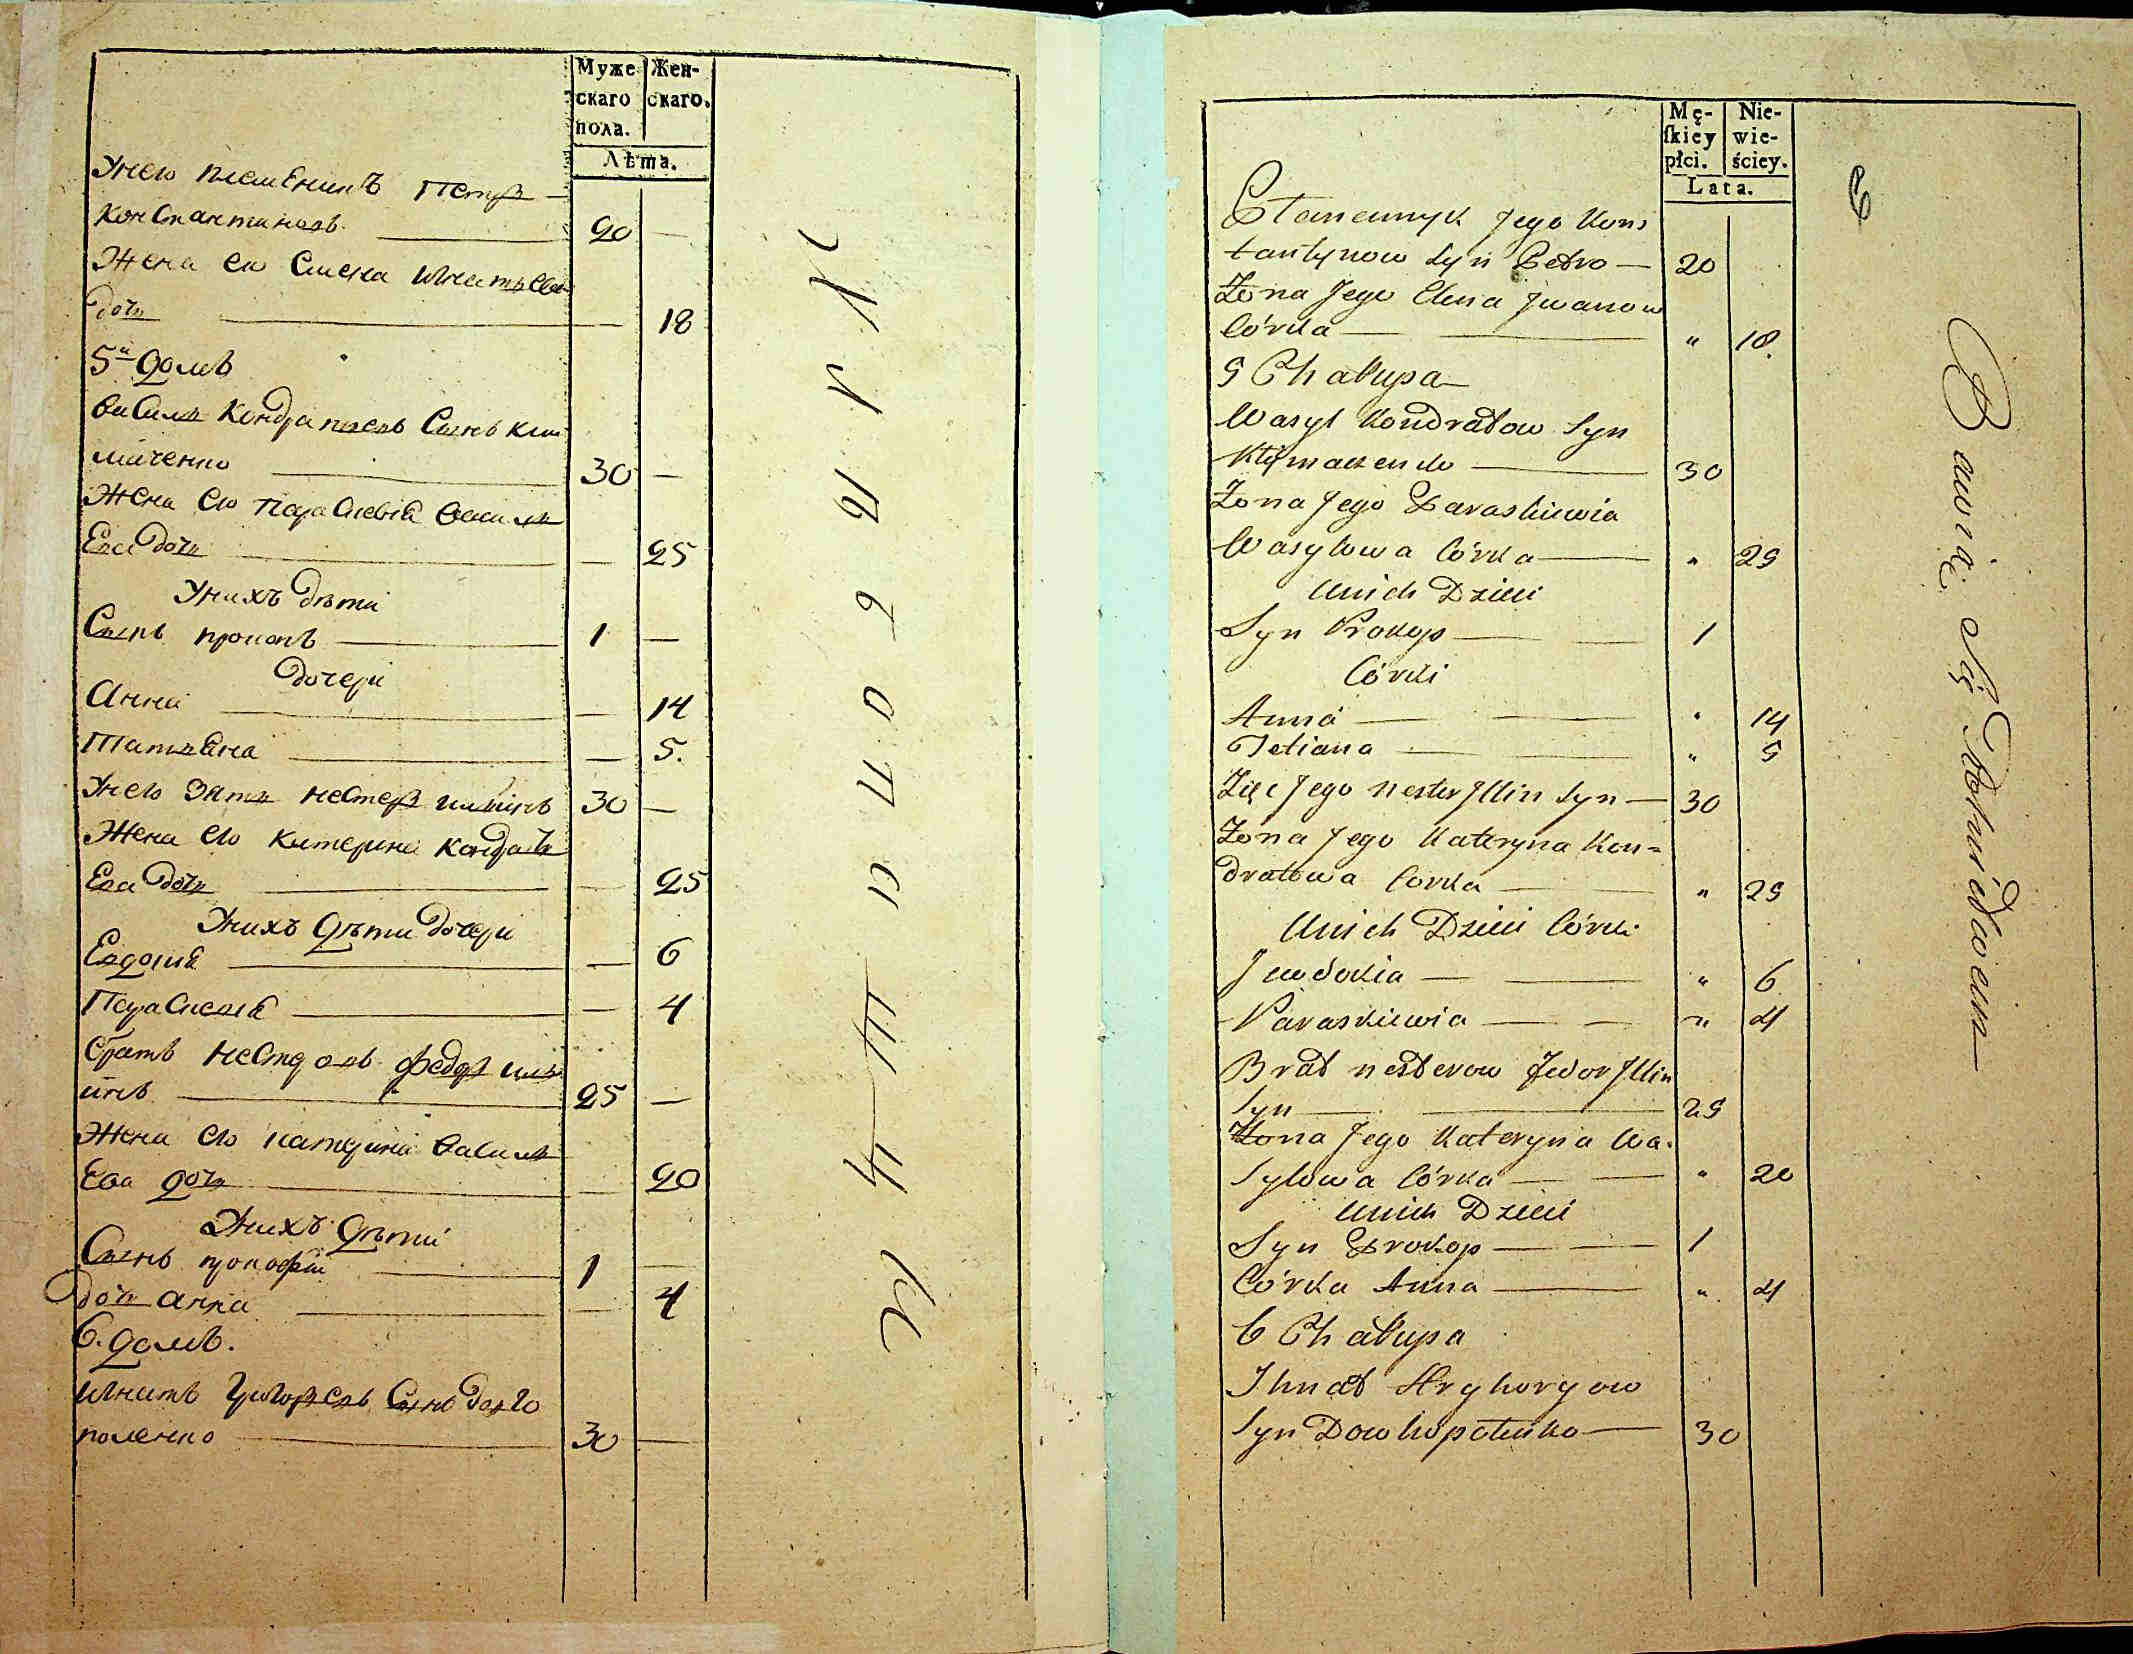 Муже Жен-
скаго скаго.
пола.
Лѣта.
Унего племѣникъ Петръ —
Константиновъ 20 —
Жена его Елена Игнатьева
дочь — 18
5й домъ
Василь Кондратьевъ Сынъ Кли
маченко 30 —
Жена его Парасковія Василь
Ева дочь — 25
Унихъ дѣти
Сынъ прокопъ 1 —
дочери
Анна — 14
Татьяна — 5.
Унего Зять нестеръ ильинъ 30 —
Жена его катерина Кондрать
Ева дочь — 25
Унихъ Дѣти дочери
Евдокия — 6
Парасковія — 4
братъ нестеровъ федоръ иль
инъ 25 —
Жена его катерина Василь
Ева дочь — 20
Унихъ Дѣти
Сынъ прокофій 1 —
дочь анна — 4
6. домъ.
Игнатъ Григорьевъ Сынъ довго
поленко 30 —
Mę- Nie-
ſkiey wie-
płci. ściey.
Lata.
Jego Kons
tantynow Syn Petro — 20
Żona Jego Elena Jwanow
Córka — " 18.
5 Chałupa
Wasyl Kondratow Syn
Kłymaczenko — 30
Żona Jego Paraskiewia
Wasylowa Córka — " 25
Unich Dzieci
Syn Prokop — 1
Córki
Anna — " 14
Tetiana — " 5
Zięć Jego nester Jllin Syn — 30
Żona Jego Kateryna Kon=
dratowa Corka — " 25
Unich Dzieci Córki
Jewdokia — " 6
Paraskiewia — " 4
Brat nesterow Fedor Jllin
Syn — 25
Żona Jego Kateryna Wa.
Sylowa Córka — " 20
Unich Dzieci
Syn Prokop — 1
Córka Anna — " 4
6 Chałupa
Ihnat Hryhorgow
Syn Dowhopolenko — 30